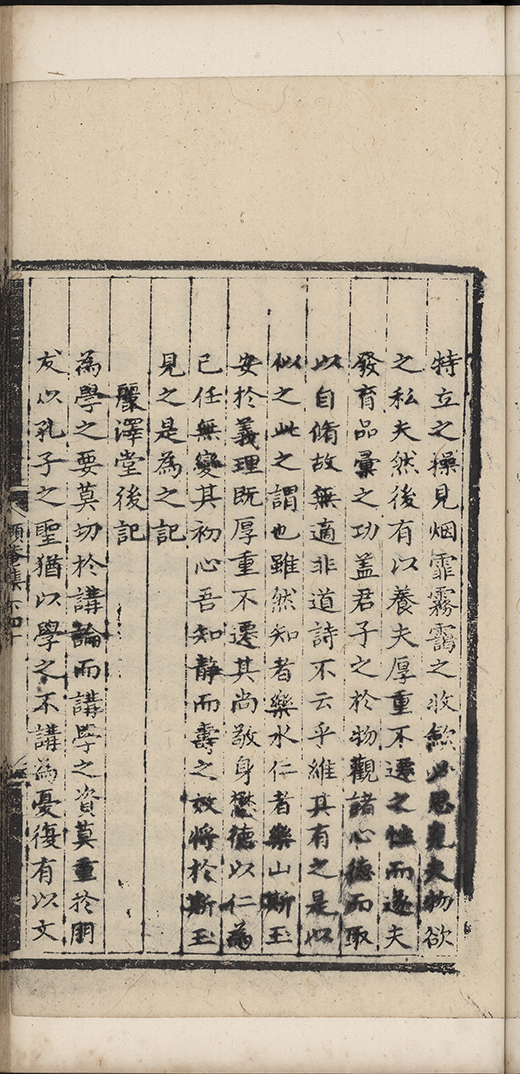 特立之操見烟霏霧靄之收歛必思克夫物欲
之私夫然後有以養夫厚重不遷之性而遂夫
發育品彙之功盖君子之於物觀諸心德而取
以自脩故無適非道詩不云乎維其有之是以
似之此之謂也雖然知者樂水仁者樂山斯玉
安於義理既厚重不遷其尚敬身懋德以仁為
己任無變其初心吾知静而壽之效將於斯玉
見之是為之記
麗澤堂後記
為學之要莫切於講論而講學之資莫重於朋
友以孔子之聖猶以學之不講為憂復有以文
頥菴集 下四十